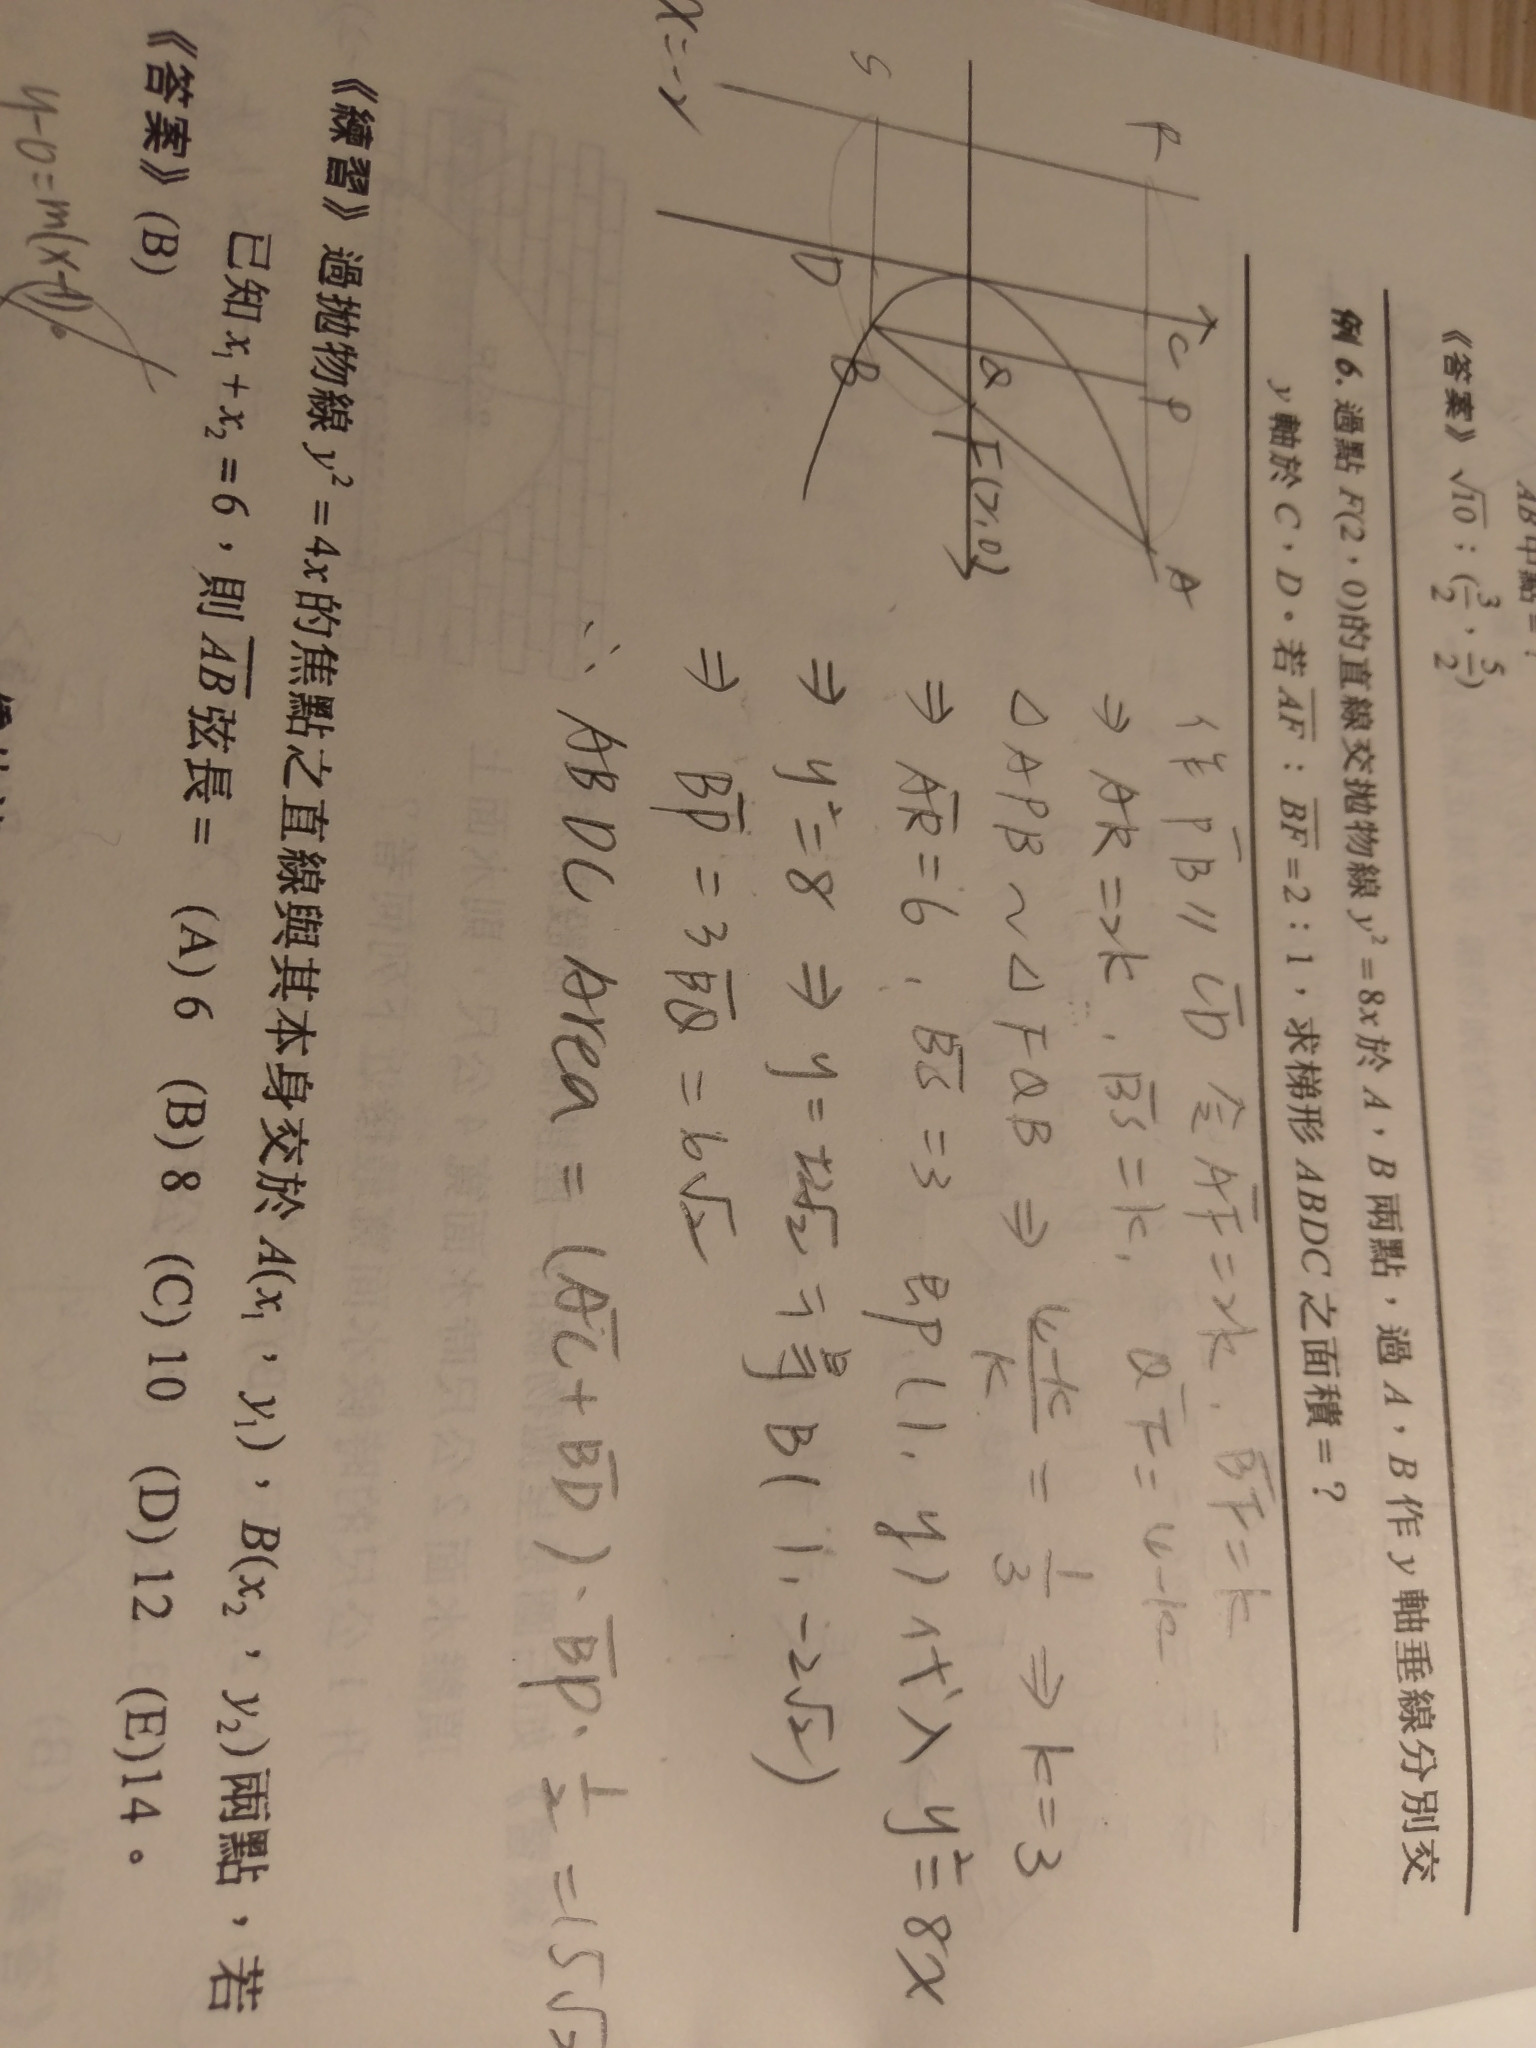 AB中點=?
《答案》√10；(3/2，5/2)
例6. 過點F(2，0)的直線交拋物線y²=8x於A，B兩點，過A，B作y軸垂線分別交
y軸於C，D。若AF：BF=2：1，求梯形ABDC之面積=？
作PB // CD 令AF=2k, BF=k
⇒ AR=2k, BS=k, QF=4-k
△APB ~ △FQB ⇒ (4-k)/k = 1/3 ⇒ k=3
⇒ AR=6, BS=3 即B(1, y) 代入 y²=8x
⇒ y²=8 ⇒ y=±2√2 = 得B(1, -2√2)
⇒ BP = 3BQ = 6√2
∴ ABDC Area = (AC+BD)·BP·1/2 = 15√2
R
A
C
P
Q
F(2,0)
S
D
B
x=-2
《練習》過拋物線y²=4x的焦點之直線與其本身交於A(x₁，y₁)，B(x₂，y₂)兩點，若
已知x₁+x₂=6，則AB弦長= (A) 6 (B) 8 (C) 10 (D) 12 (E)14。
《答案》(B)
y-0=m(x-1)